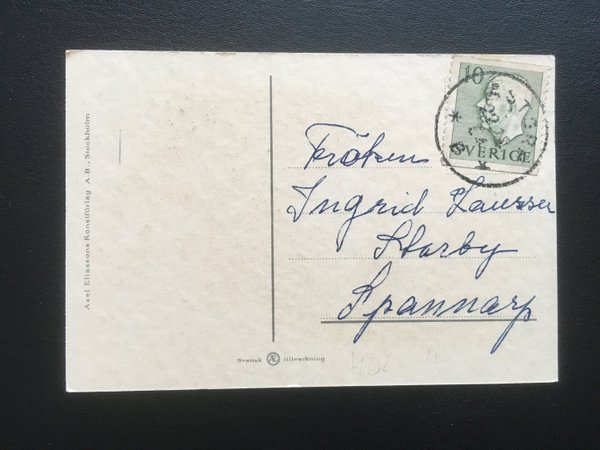 10
SVERIGE
Fröken
Ingrid
Starby
Spannarp
Axel Eliassons Konstförlag A.B., Stockholm
Svensk Æ tillverkning